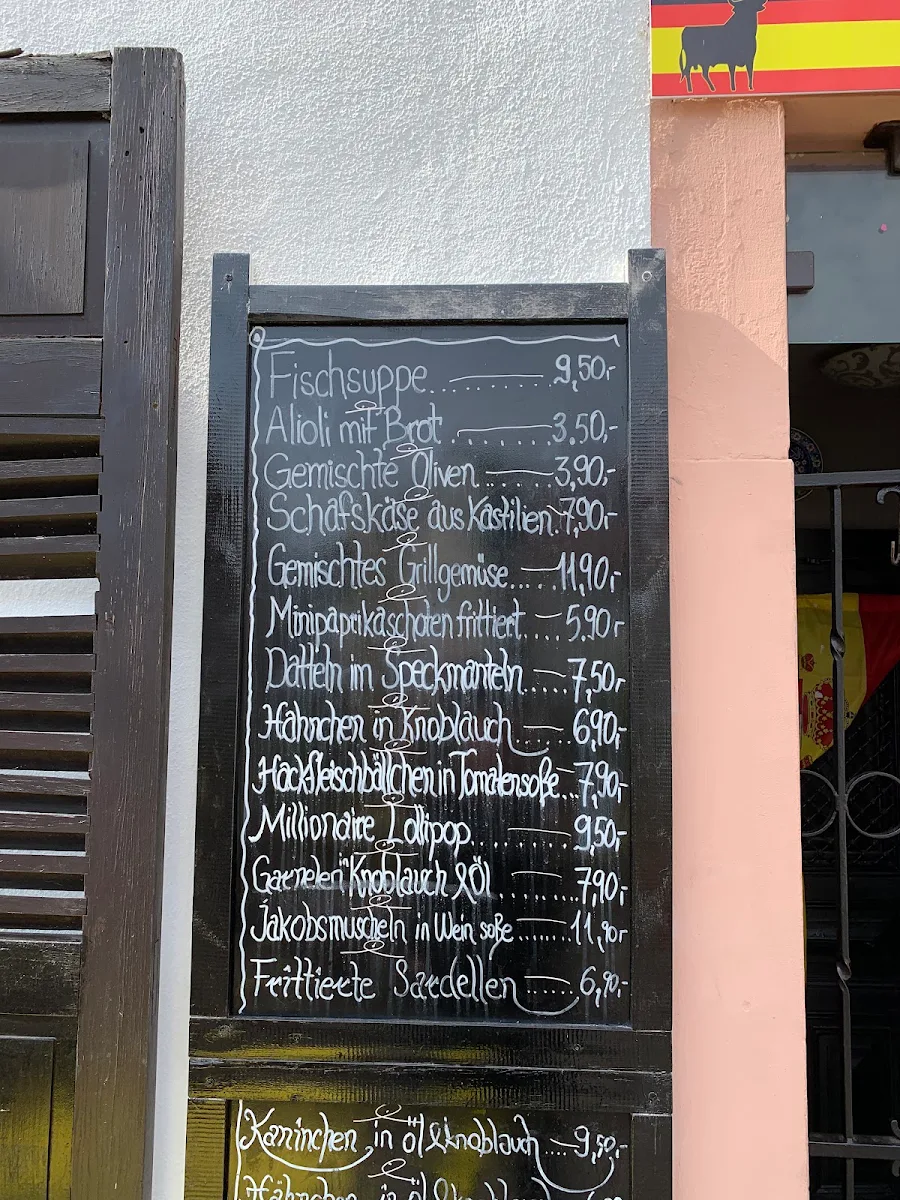 Fischsuppe.................9,50,-
Alioli mit Brot ...........3.50,-
Gemischte Oliven ..........3,90,-
Schafskäse aus Kastilien..7,90,-
Gemischtes Grillgemüse.....11,90,-
Minipaprikaschoten frittiert....5.90,-
Datteln im Speckmanteln.....7,50,-
Hähnchen in Knoblauch.....6,90,-
Hackfleischbällchen in Tomatensoße...7,90,-
Millionaire Lollipop........9,50,-
Garnelen in Knoblauch & Öl ......7,90,-
Jakobsmuscheln in Wein soße........11,90,-
Frittierte Sardellen ......6,90,-
Kaninchen in öl & knoblauch ....9,50,-
Hähnchen in öl & knoblauch